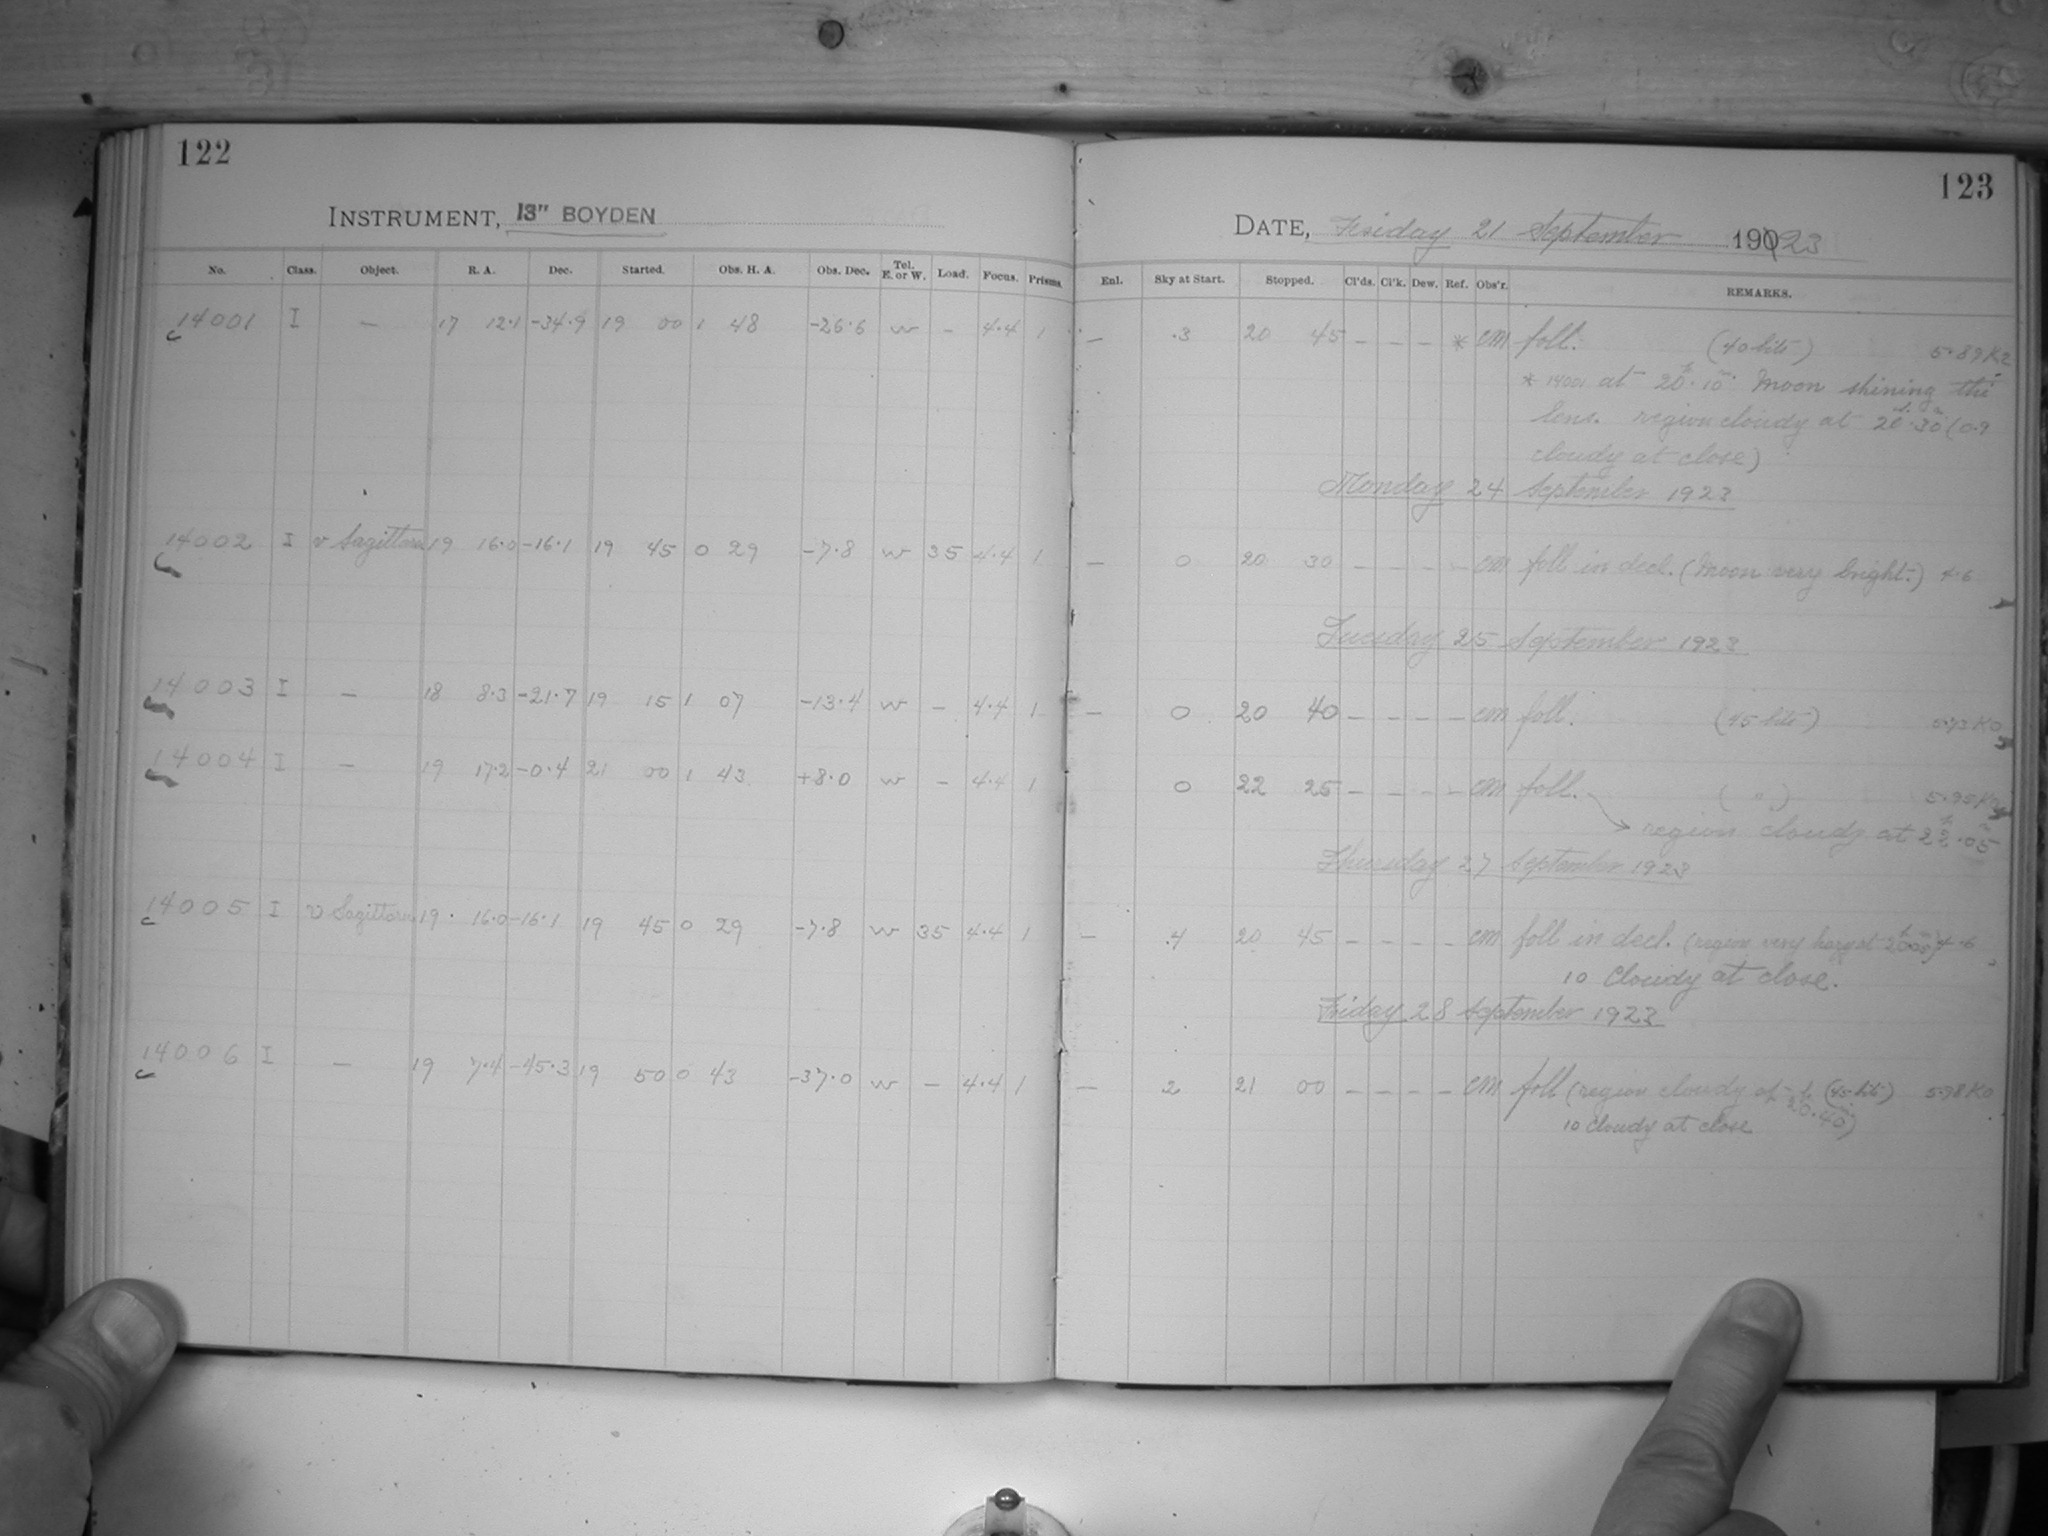 122
INSTRUMENT, 13" BOYDEN
No. Class. Object. R. A. Dec. Started. Obs. H. A. Obs. Dec. Tel. E. or W. Load. Focus. Prisms.
14001 I — 17 12.1 -34.9 19 00 1 48 -26.6 w - 4.4 1
14002 I v Sagittarii 19 16.0 -16.1 19 45 0 29 -7.8 w 35 4.4 1
14003 I — 18 8.3 -21.7 19 15 1 07 -13.4 w - 4.4 1
14004 I — 19 17.2 -0.4 21 00 1 43 +8.0 w - 4.4 1
14005 I v Sagittarii 19 16.0 -16.1 19 45 0 29 -7.8 w 35 4.4 1
14006 I — 19 7.4 -45.3 19 50 0 43 -37.0 w - 4.4 1
123
DATE, Friday 21 September 1923
Enl. Sky at Start. Stopped. Cl'ds. Cl'k. Dew. Ref. Obs'r. REMARKS.
— .3 20 45 - - - * CM foll. 5.89 K2
* 14001 at 20h.10m Moon shining the
lens. region cloudy at 20h.30m (0.9
cloudy at close)
Monday 24 September 1923
— 0 20 30 - - - - CM foll in decl. (Moon very bright.) 4.6
Tuesday 25 September 1923
— 0 20 40 - - - - CM foll. 5.93 K0
0 22 25 - - - - CM foll. ( " )
region cloudy at 22h.05m
Thursday 27 September 1923
— .4 20 45 - - - - CM foll in decl. (region very hazy at 4.6
10 Cloudy at close.
Friday 28 September 1923
— 2 21 00 - - - - CM foll (region cloudy 20h.40m) 5.98 K0
10 cloudy at close